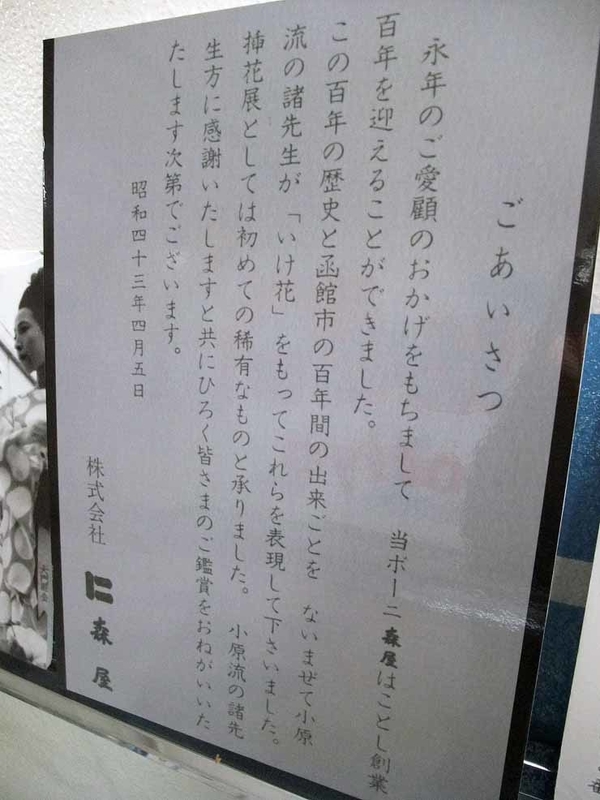 ごあいさつ
永年のご愛顧のおかげをもちまして　当ボーニ森屋はことし創業
百年を迎えることができました。
この百年の歴史と函館市の百年間の出来ごとを　ないまぜて小原
流の諸先生が「いけ花」をもってこれらを表現して下さいました。
挿花展としては初めての稀有なものと承りました。　小原流の諸先
生方に感謝いたしますと共にひろく皆さまのご鑑賞をおねがいいた
たします次第でございます。
昭和四十三年四月五日
株式会社　森屋